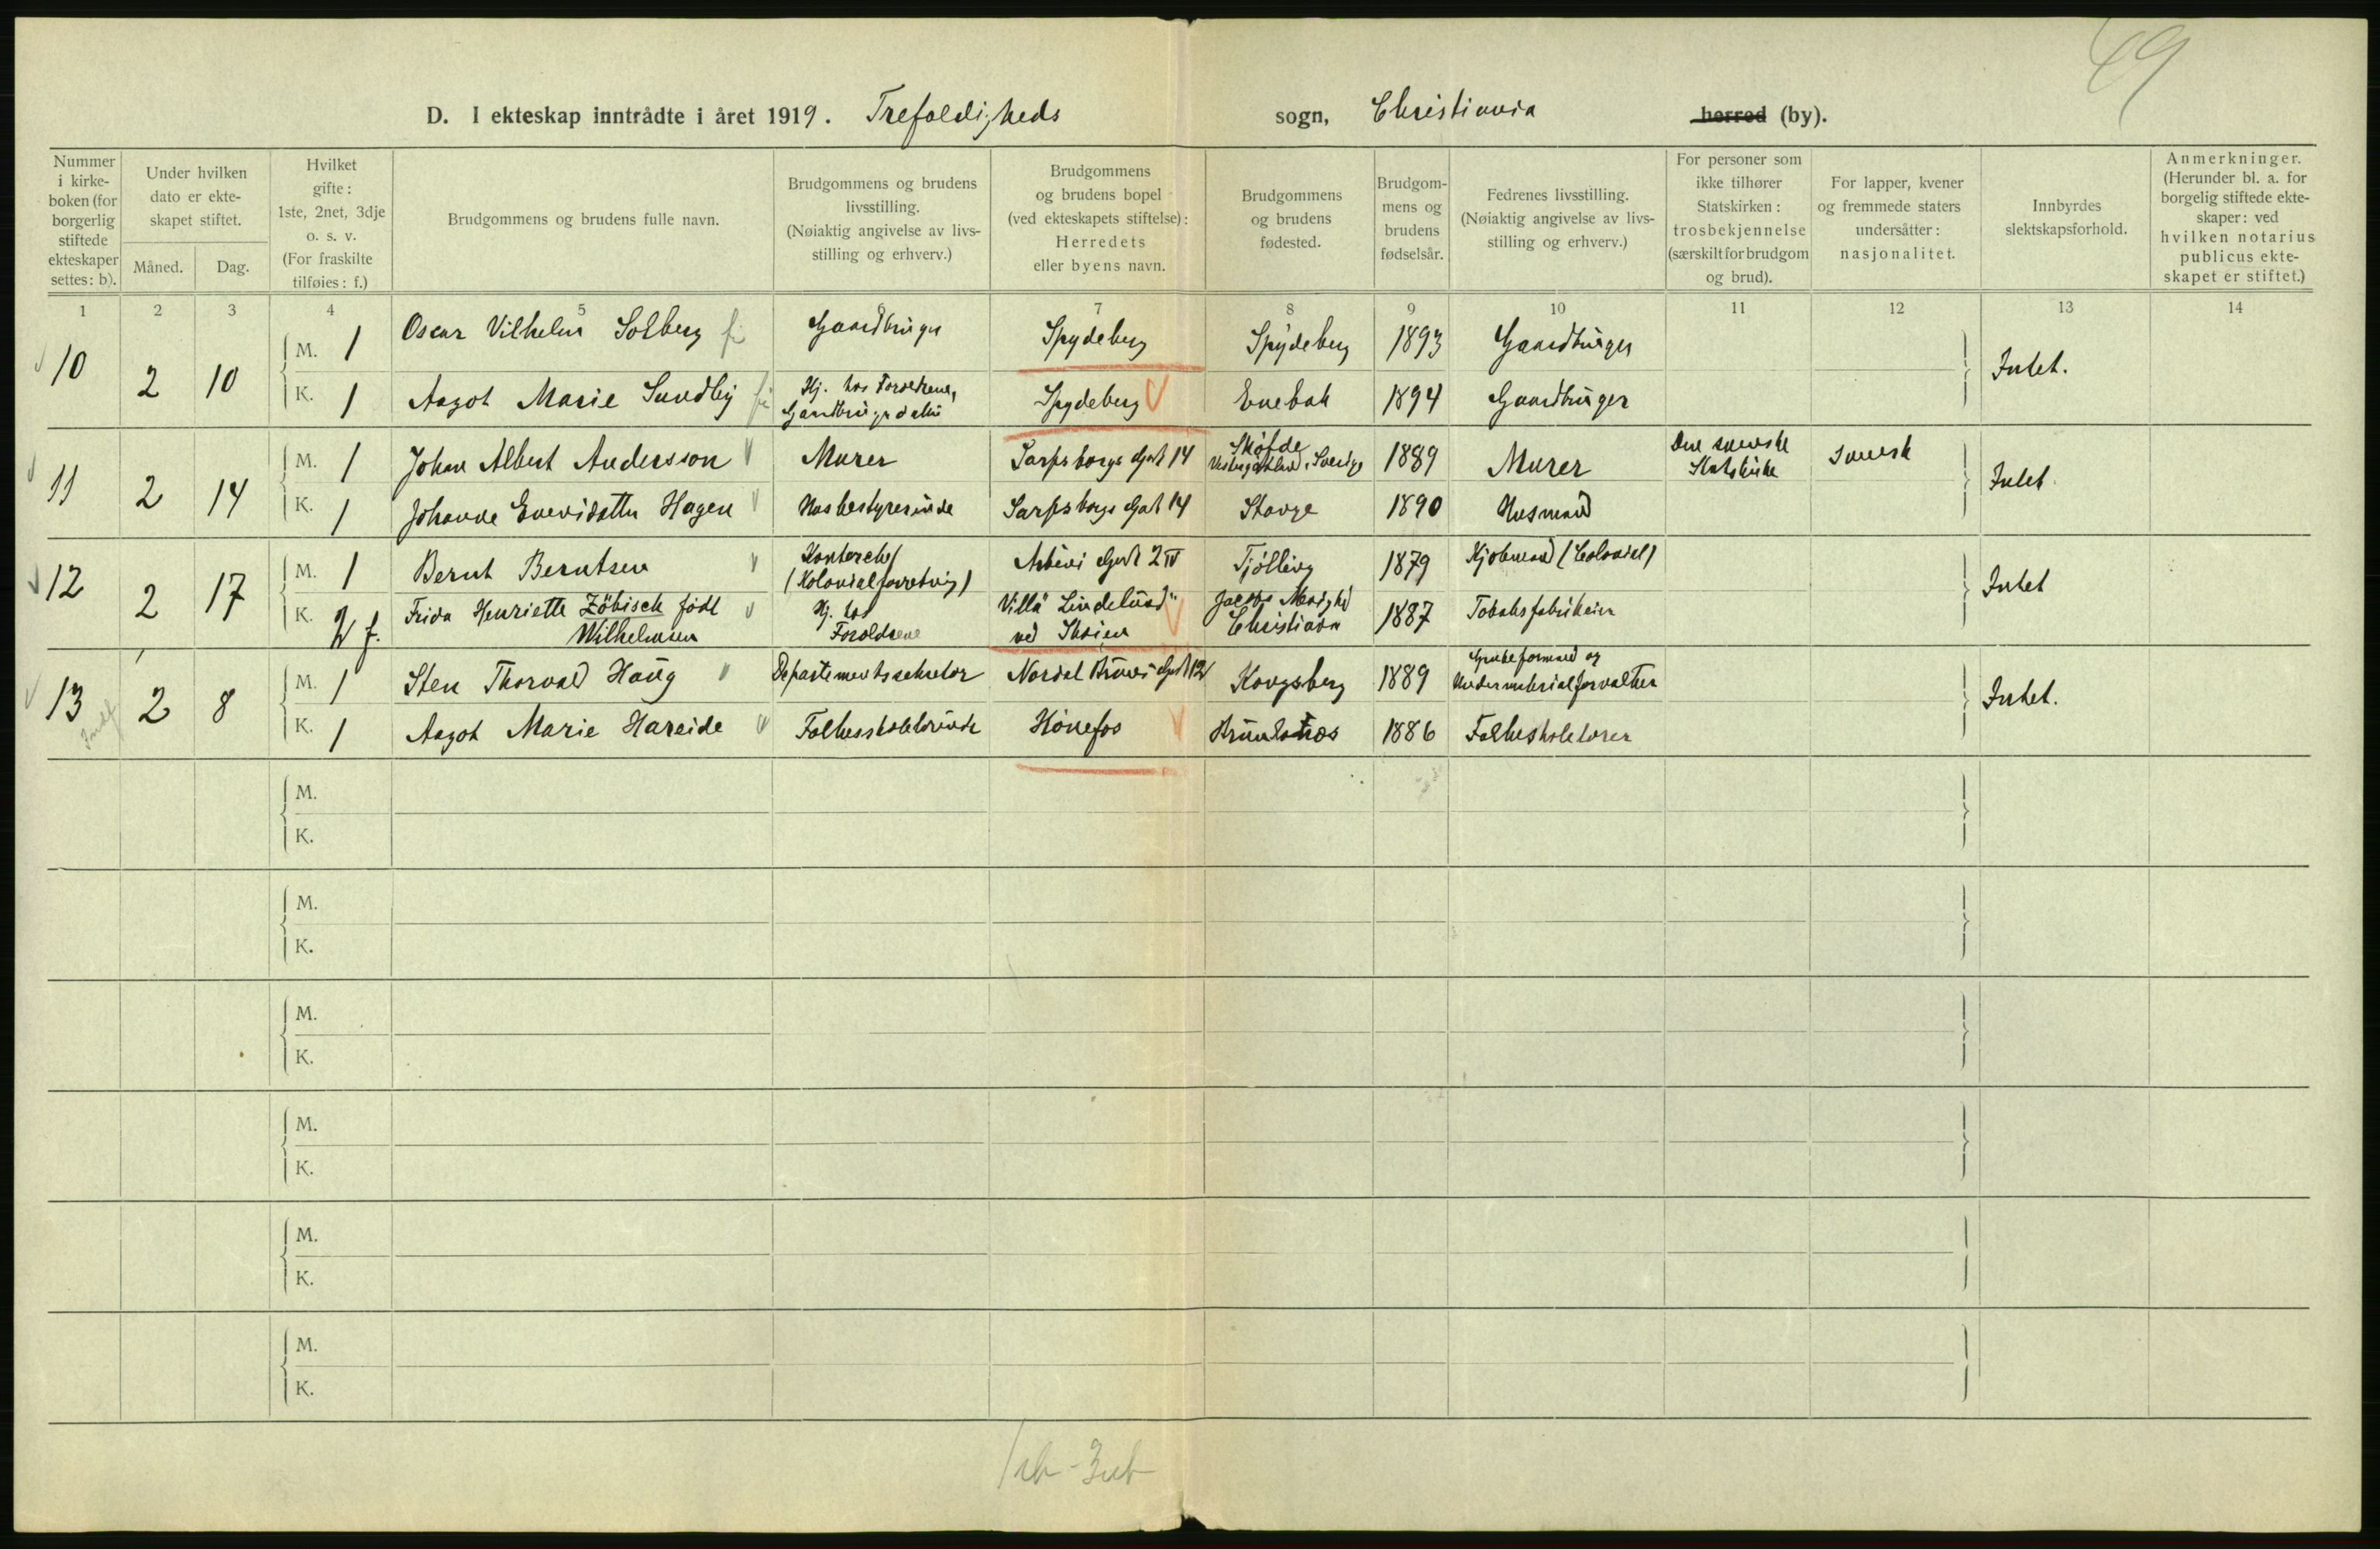 49
D. I ekteskap inntrådte i året 1919. Trefoldigheds sogn, Christiania herred (by).
Nummer i kirke-boken (for borgerlig stiftede ekteskaper settes: b).
Under hvilken dato er ekte-skapet stiftet.
Måned. Dag.
Hvilket gifte: 1ste, 2net, 3dje o. s. v. (For fraskilte tilføies: f.)
Brudgommens og brudens fulle navn.
Brudgommens og brudens livsstilling. (Nøiaktig angivelse av livs-stilling og erhverv.)
Brudgommens og brudens bopel (ved ekteskapets stiftelse): Herredets eller byens navn.
Brudgommens og brudens fødested.
Brudgom-mens og brudens fødselsår.
Fedrenes livsstilling. (Nøiaktig angivelse av livs-stilling og erhverv.)
For personer som ikke tilhører Statskirken: trosbekjennelse (særskilt for brudgom og brud).
For lapper, kvener og fremmede staters undersåtter: nasjonalitet.
Innbyrdes slektskapsforhold.
Anmerkninger. (Herunder bl. a. for borgelig stiftede ekte-skaper: ved hvilken notarius publicus ekte-skapet er stiftet.)
1 2 3 4 5 6 7 8 9 10 11 12 13 14
10 2 10 M. 1 Oscar Vilhelm Solberg Gaardbruger Spydeberg Spydeberg 1893 Gaardbruger Intet.
K. 1 Aagot Marie Sundby Hj. hos Forældrene, Spydeberg Enebak 1894 Gaardbruger
11 2 14 M. 1 Johan Albert Andersson Murer Sarpsborg Gat 14 Skøfde Sverige 1889 Murer Den svenske Statskirke svensk Intet
K. 1 Johanne Hagen Husbestyrerinde Sarpsborg Gat 14 Stange 1890 Husmand
12 2 17 M. 1 Bernt Berntsen Kontorchef (Kolonialforretning) 2 IV Tjølling 1879 Kjøbmand (Colonial) Intet
K. 2 f. Frida Henriette Zöbisch født Wilhelmsen Hj. hos Foreldrene Villa "Lindelund" ved Skøien Christiania 1887 Tobaksfabrikeier
13 2 8 M. 1 Sten Thorvald Haug Departementssekretær Nordal Bruns Gat 12 Kongsberg 1889 Grubeformand og Undermaterialforvalter Intet.
K. 1 Aagot Marie Hareide Folkeskolelærerinde Hönefos Brunlanes 1886 Folkeskolelærer
M.
K.
M.
K.
M.
K.
M.
K.
M.
K.
M.
K.